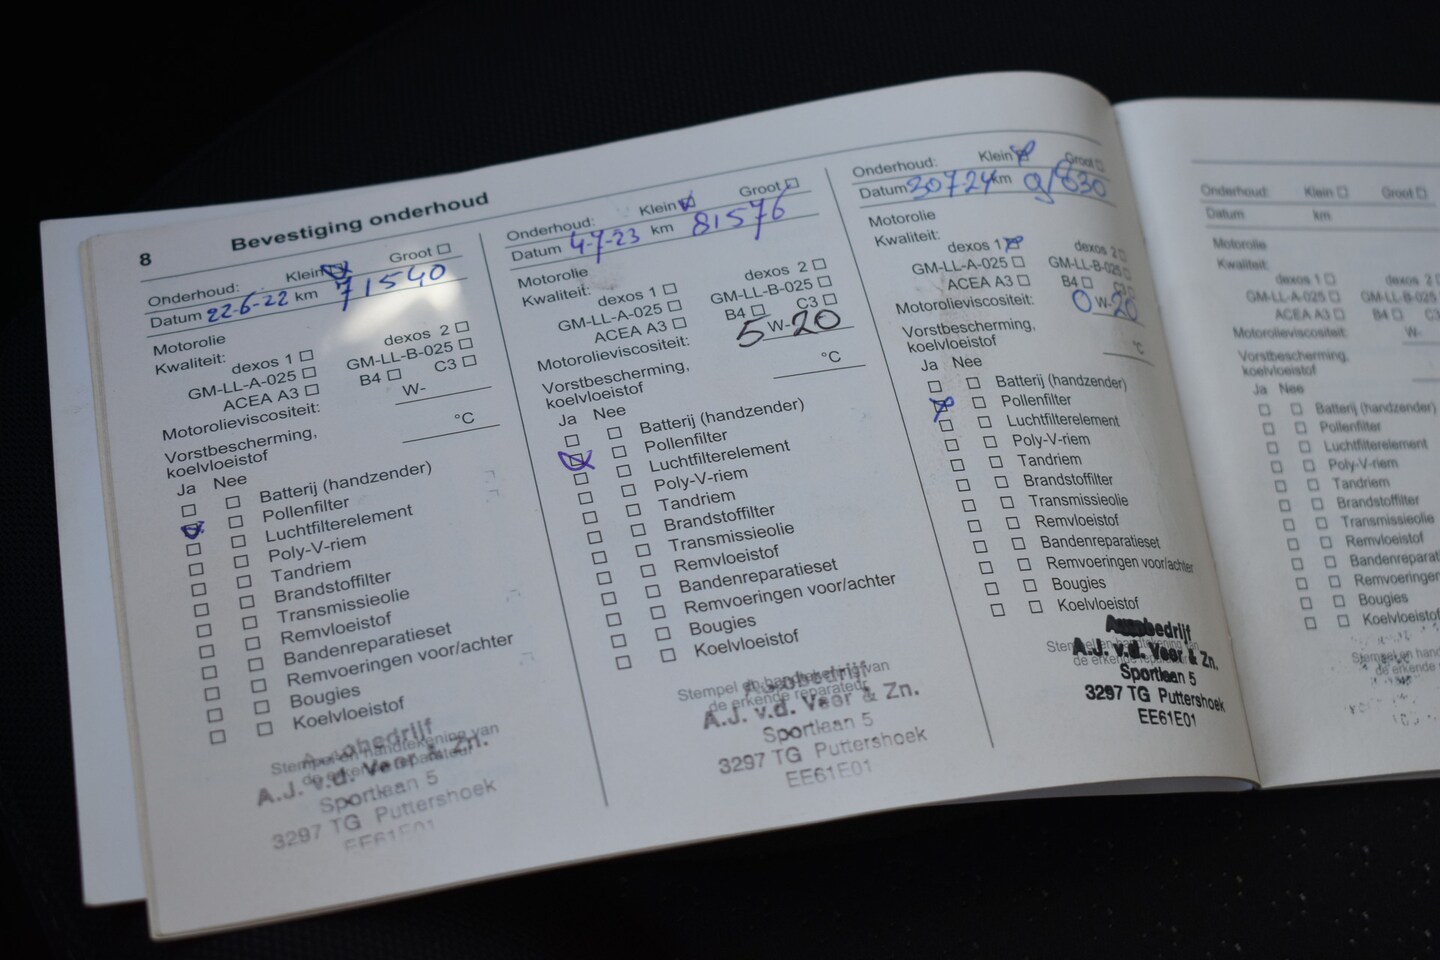 8 Bevestiging onderhoud
Onderhoud: Klein Groot
Datum 22-6-22 km 71540
Motorolie
Kwaliteit:
dexos 1 dexos 2
GM-LL-A-025 GM-LL-B-025
ACEA A3 B4 C3
Motorolieviscositeit: W-
Vorstbescherming,
koelvloeistof °C
Ja Nee
Batterij (handzender)
Pollenfilter
Luchtfilterelement
Poly-V-riem
Tandriem
Brandstoffilter
Transmissieolie
Remvloeistof
Bandenreparatieset
Remvoeringen voor/achter
Bougies
Koelvloeistof
Stempel en handtekening van
de erkende reparateur
Autobedrijf
A.J. v.d. Veer & Zn.
Sportlaan 5
3297 TG Puttershoek
EE61E01
Onderhoud: Klein Groot
Datum 4-7-23 km 81576
Motorolie
Kwaliteit:
dexos 1 dexos 2
GM-LL-A-025 GM-LL-B-025
ACEA A3 B4 C3
Motorolieviscositeit: 5 W-20
Vorstbescherming,
koelvloeistof °C
Ja Nee
Batterij (handzender)
Pollenfilter
Luchtfilterelement
Poly-V-riem
Tandriem
Brandstoffilter
Transmissieolie
Remvloeistof
Bandenreparatieset
Remvoeringen voor/achter
Bougies
Koelvloeistof
Stempel en handtekening van
de erkende reparateur
Autobedrijf
A.J. v.d. Veer & Zn.
Sportlaan 5
3297 TG Puttershoek
EE61E01
Onderhoud: Klein Groot
Datum 30724 km
Motorolie
Kwaliteit:
dexos 1 dexos 2
GM-LL-A-025 GM-LL-B-025
ACEA A3 B4 C3
Motorolieviscositeit: 0 W-20
Vorstbescherming,
koelvloeistof °C
Ja Nee
Batterij (handzender)
Pollenfilter
Luchtfilterelement
Poly-V-riem
Tandriem
Brandstoffilter
Transmissieolie
Remvloeistof
Bandenreparatieset
Remvoeringen voor/achter
Bougies
Koelvloeistof
Stempel en handtekening van
de erkende reparateur
Autobedrijf
A.J. v.d. Veer & Zn.
Sportlaan 5
3297 TG Puttershoek
EE61E01
Onderhoud: Klein Groot
Datum km
Motorolie
Kwaliteit:
dexos 1 dexos 2
GM-LL-A-025 GM-LL-B-025
ACEA A3 B4 C3
Motorolieviscositeit: W-
Vorstbescherming,
koelvloeistof
Ja Nee
Batterij (handzender)
Pollenfilter
Luchtfilterelement
Poly-V-riem
Tandriem
Brandstoffilter
Transmissieolie
Remvloeistof
Bandenreparati
Remvoeringen
Bougies
Koelvloeistof
Stempel en hand
de erkende